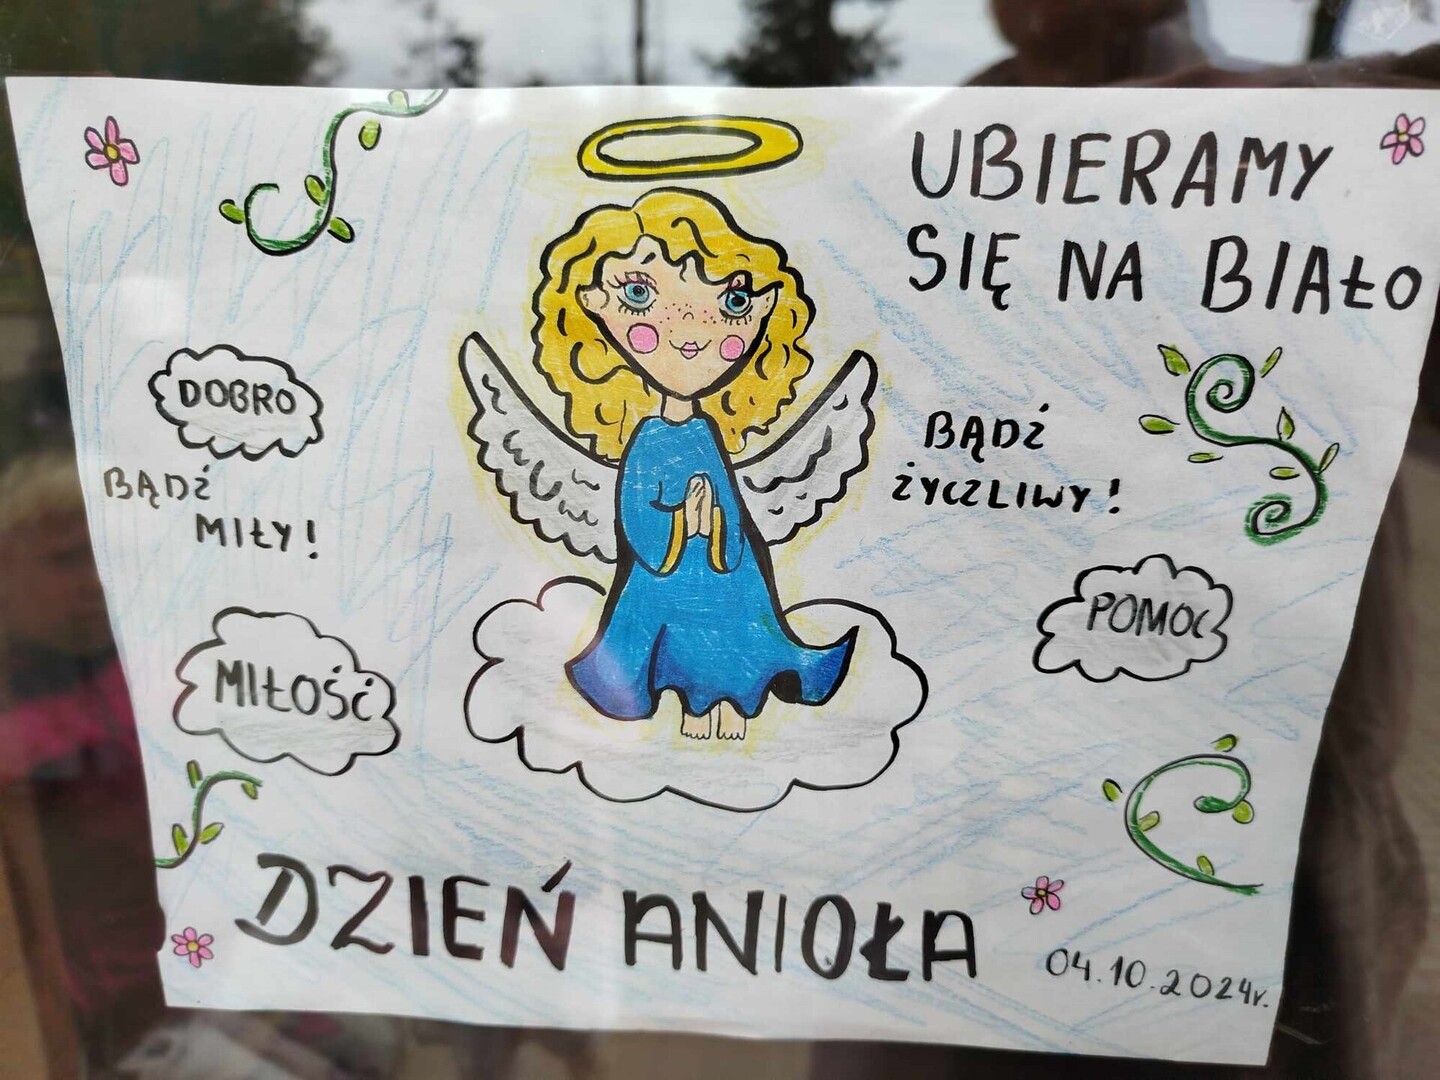 UBIERAMY
SIĘ NA BIAŁO
DOBRO
BĄDŹ
MIŁY!
BĄDŹ
ŻYCZLIWY!
MIŁOŚĆ
POMOC
DZIEŃ ANIOŁA
04.10.2024r.